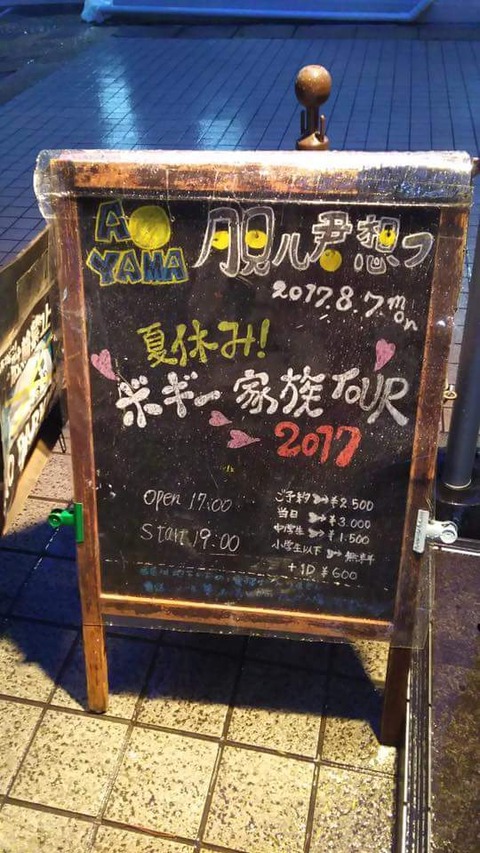 AO
YAMA
月見ル君想フ
2017.8.7.mon
夏休み!
ボギー家族TOUR
2017
Open 17:00
Start 19:00
ご予約 ¥2.500
当日 ¥3.000
中学生 ¥1.500
小学生以下 無料
+1D ¥600